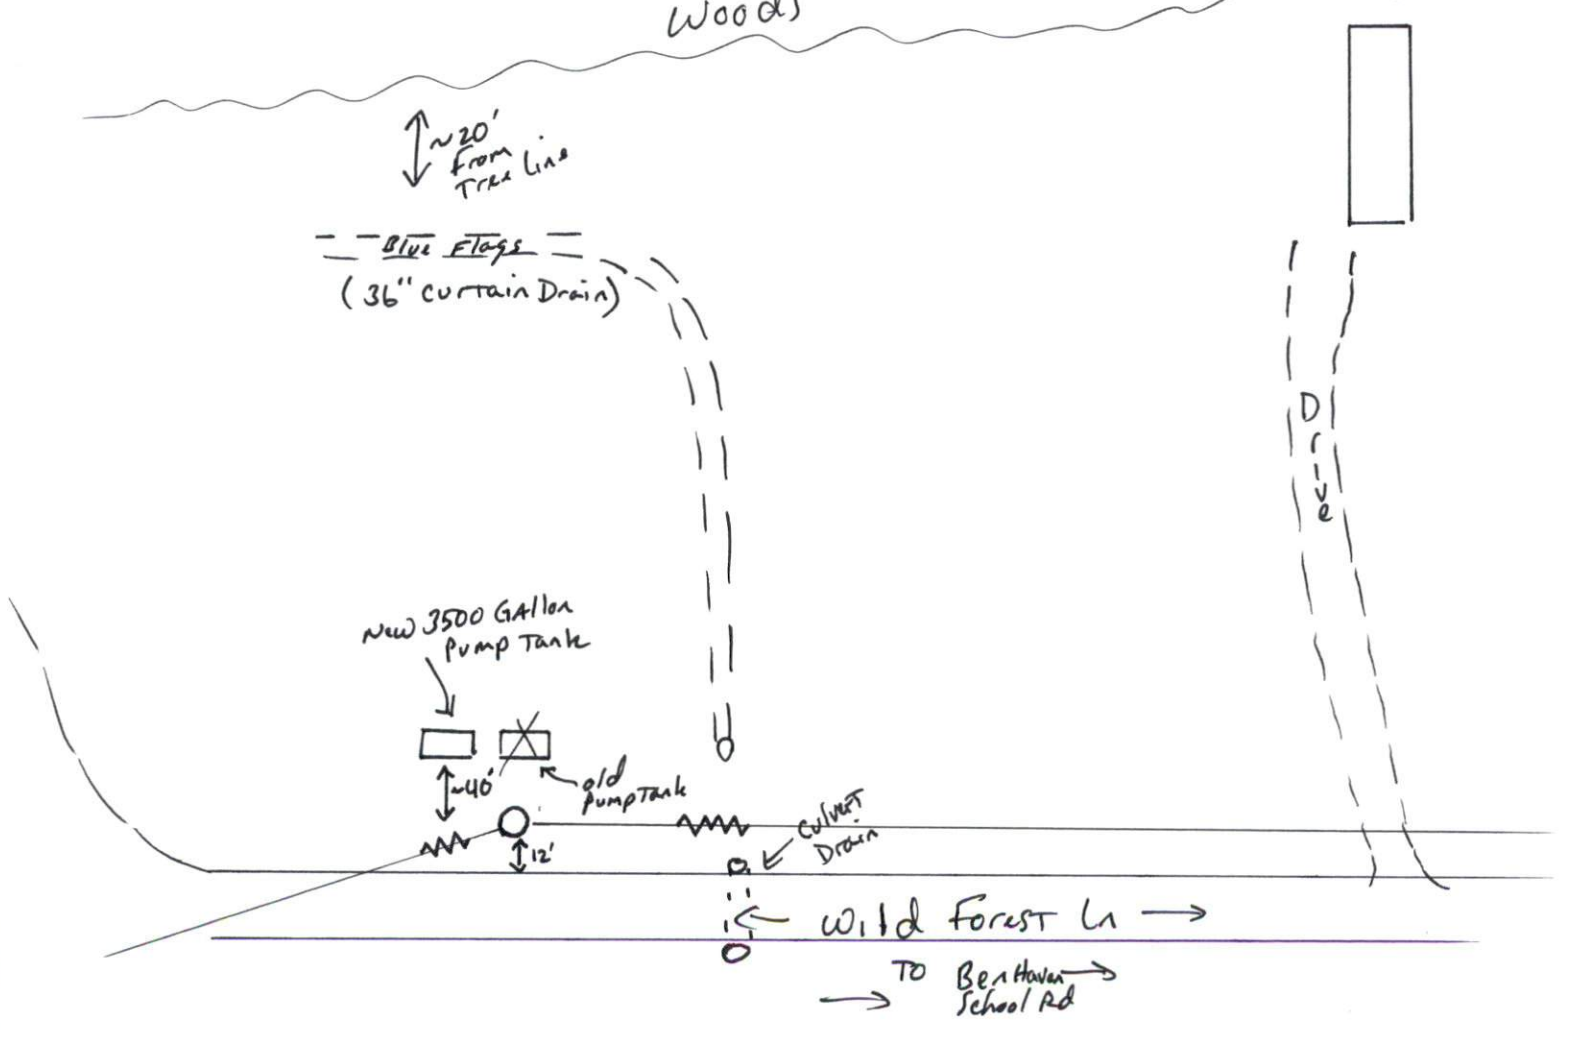 Woods
~20'
From
Tree Line
Blue Flags
(36" Curtain Drain)
Drive
New 3500 Gallon
Pump Tank
~40'
old
Pump Tank
12'
Culvert
Drain
Wild Forest Ln
To Ben Haven
School Rd